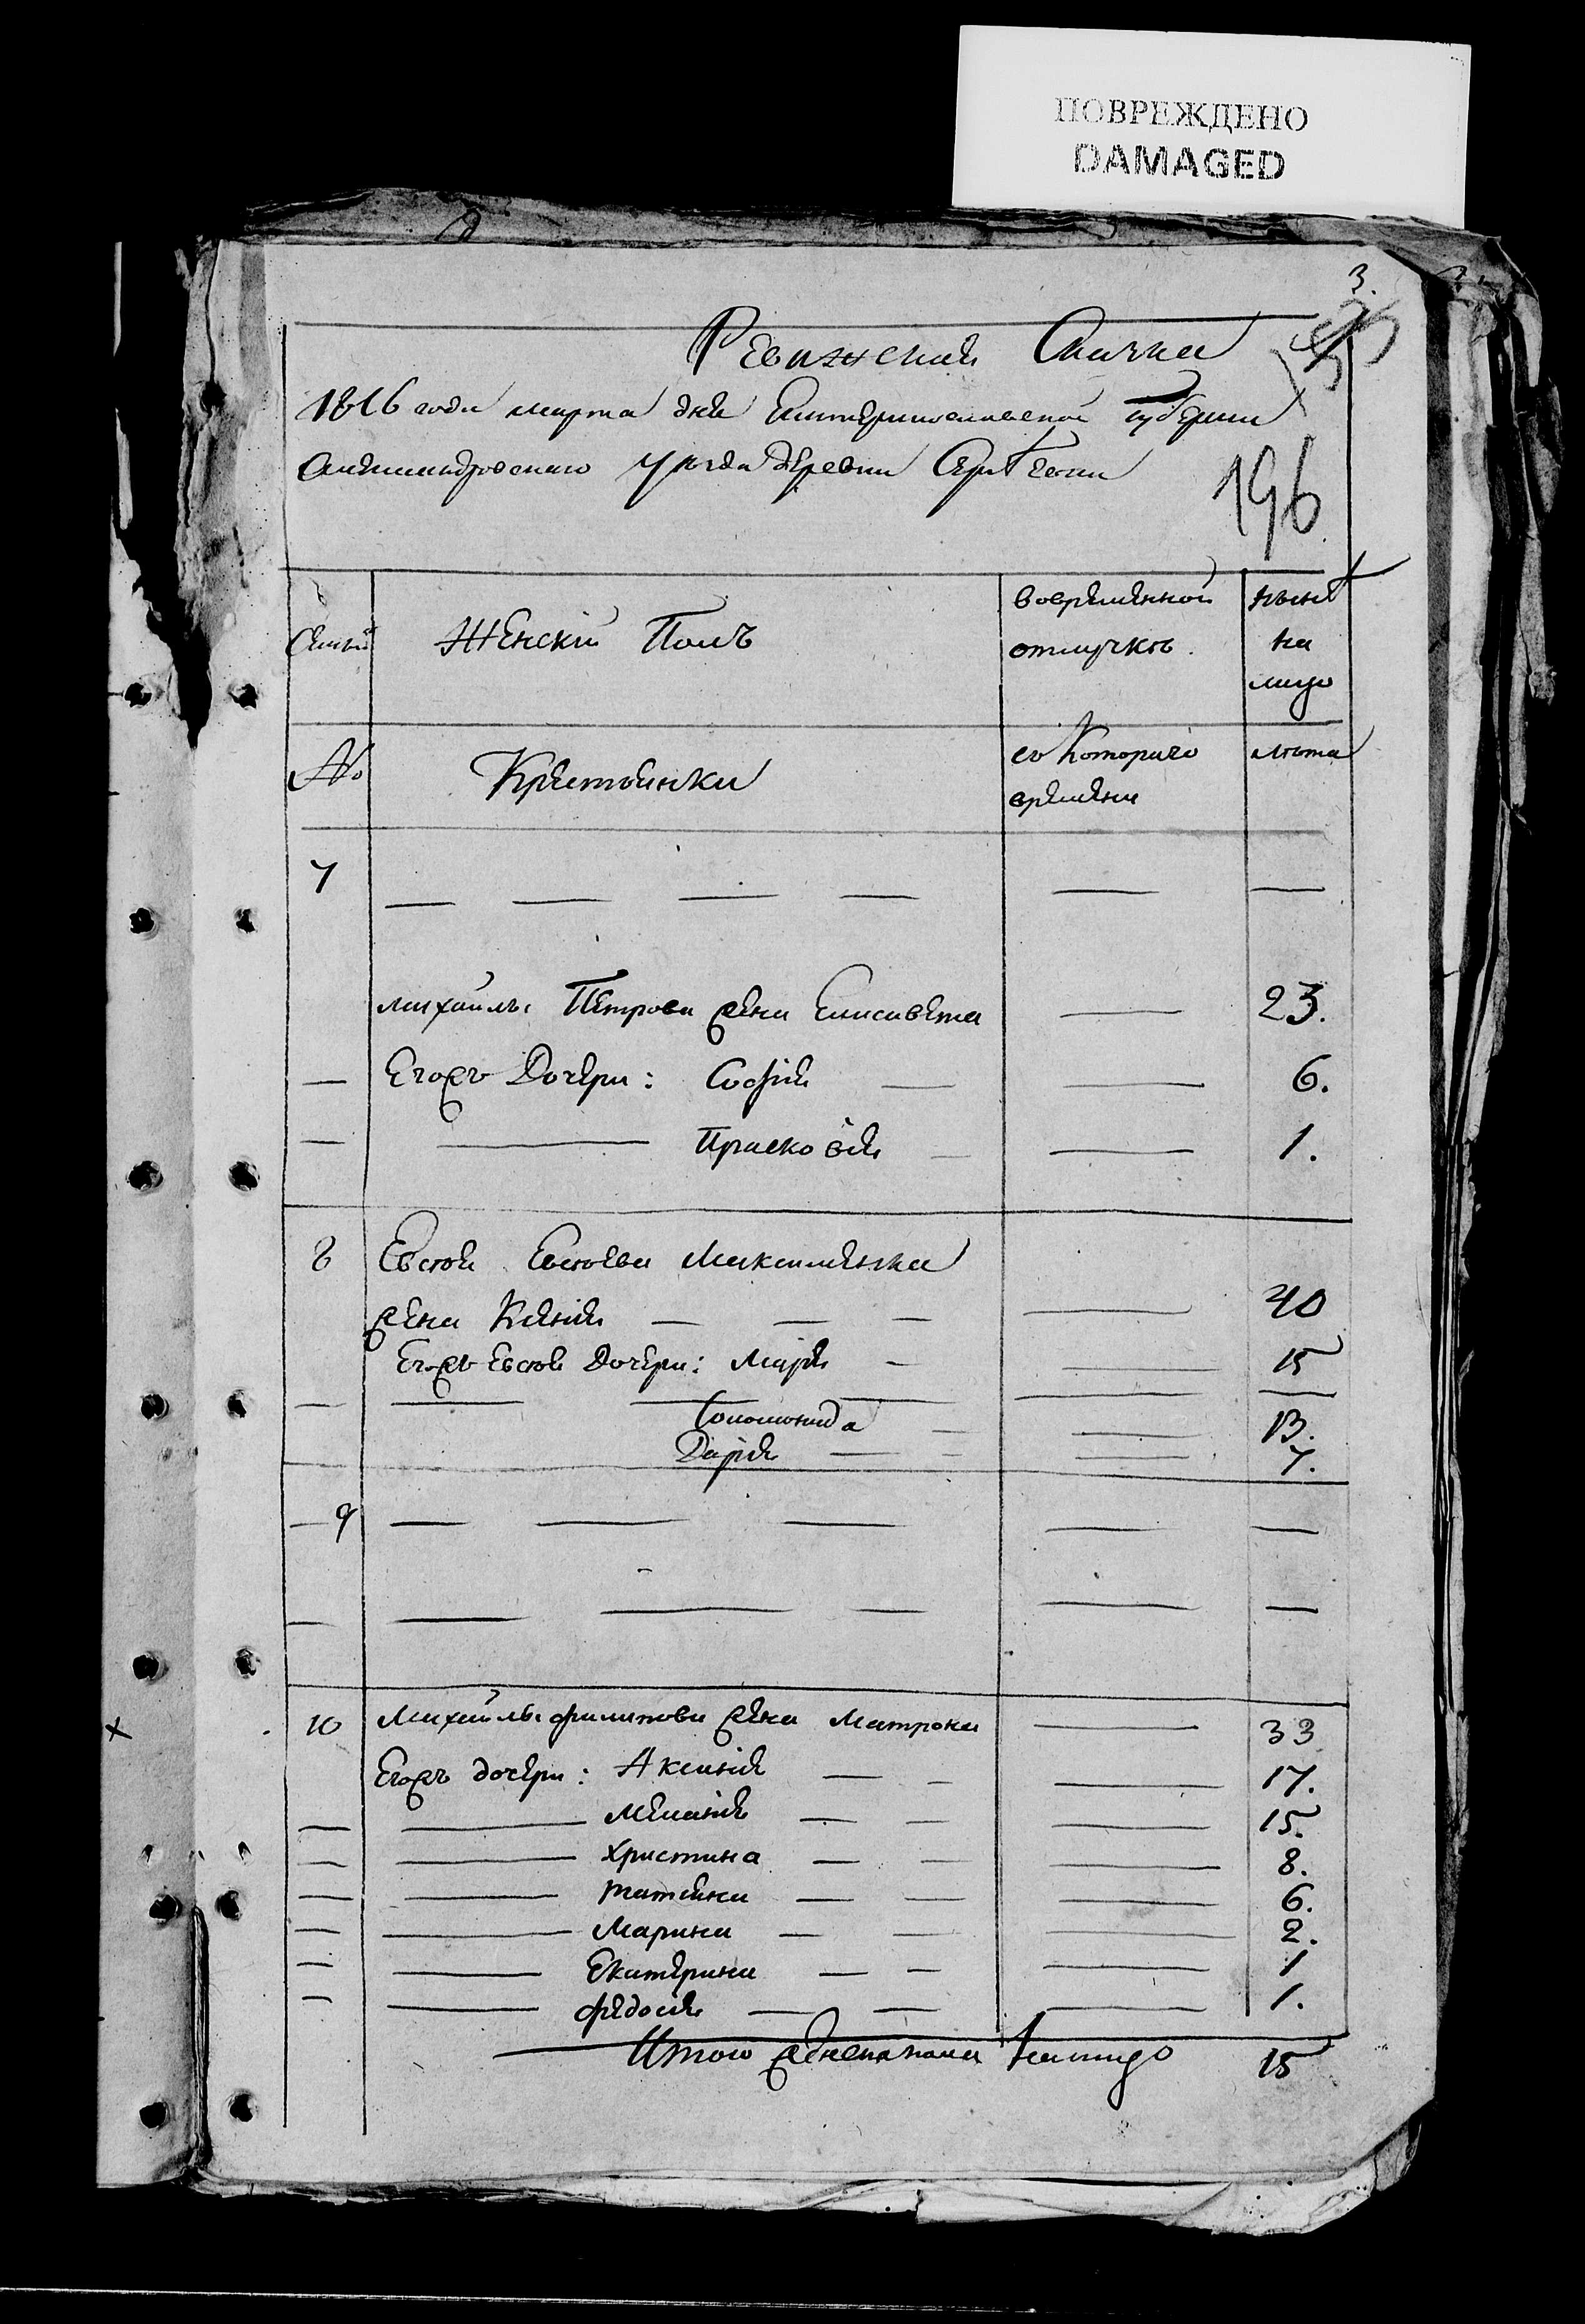 ПОВРЕЖДЕНО
DAMAGED
3.
Ревижская Скаска
1816 года марта дня Екатеринославской губернии
Александровскаго уезда деревни
196
Семьи
Женскій Полъ
вовременной
отлучкѣ.
нынѣ
на
лицо
№
Крестьянки
съ Котораго
времени
лѣта
7
Михайлы Петрова жена Елисавета 23.
Егожъ Дочери: Софія 6.
Прасковія 1.
8 Евстафія
жена Ксенія 40
Егожъ Дочери: Марія 15
Соломонида 13.
Дарія 7.
9
10 Михайлы Филипова жена Матрона 33
Егожъ дочери: Аксинія 17.
Меланія 15.
Христина 8.
Татіяна 6.
Марина 2.
Екатерина 1
Федосія 1.
Итого женска пола налицо 15